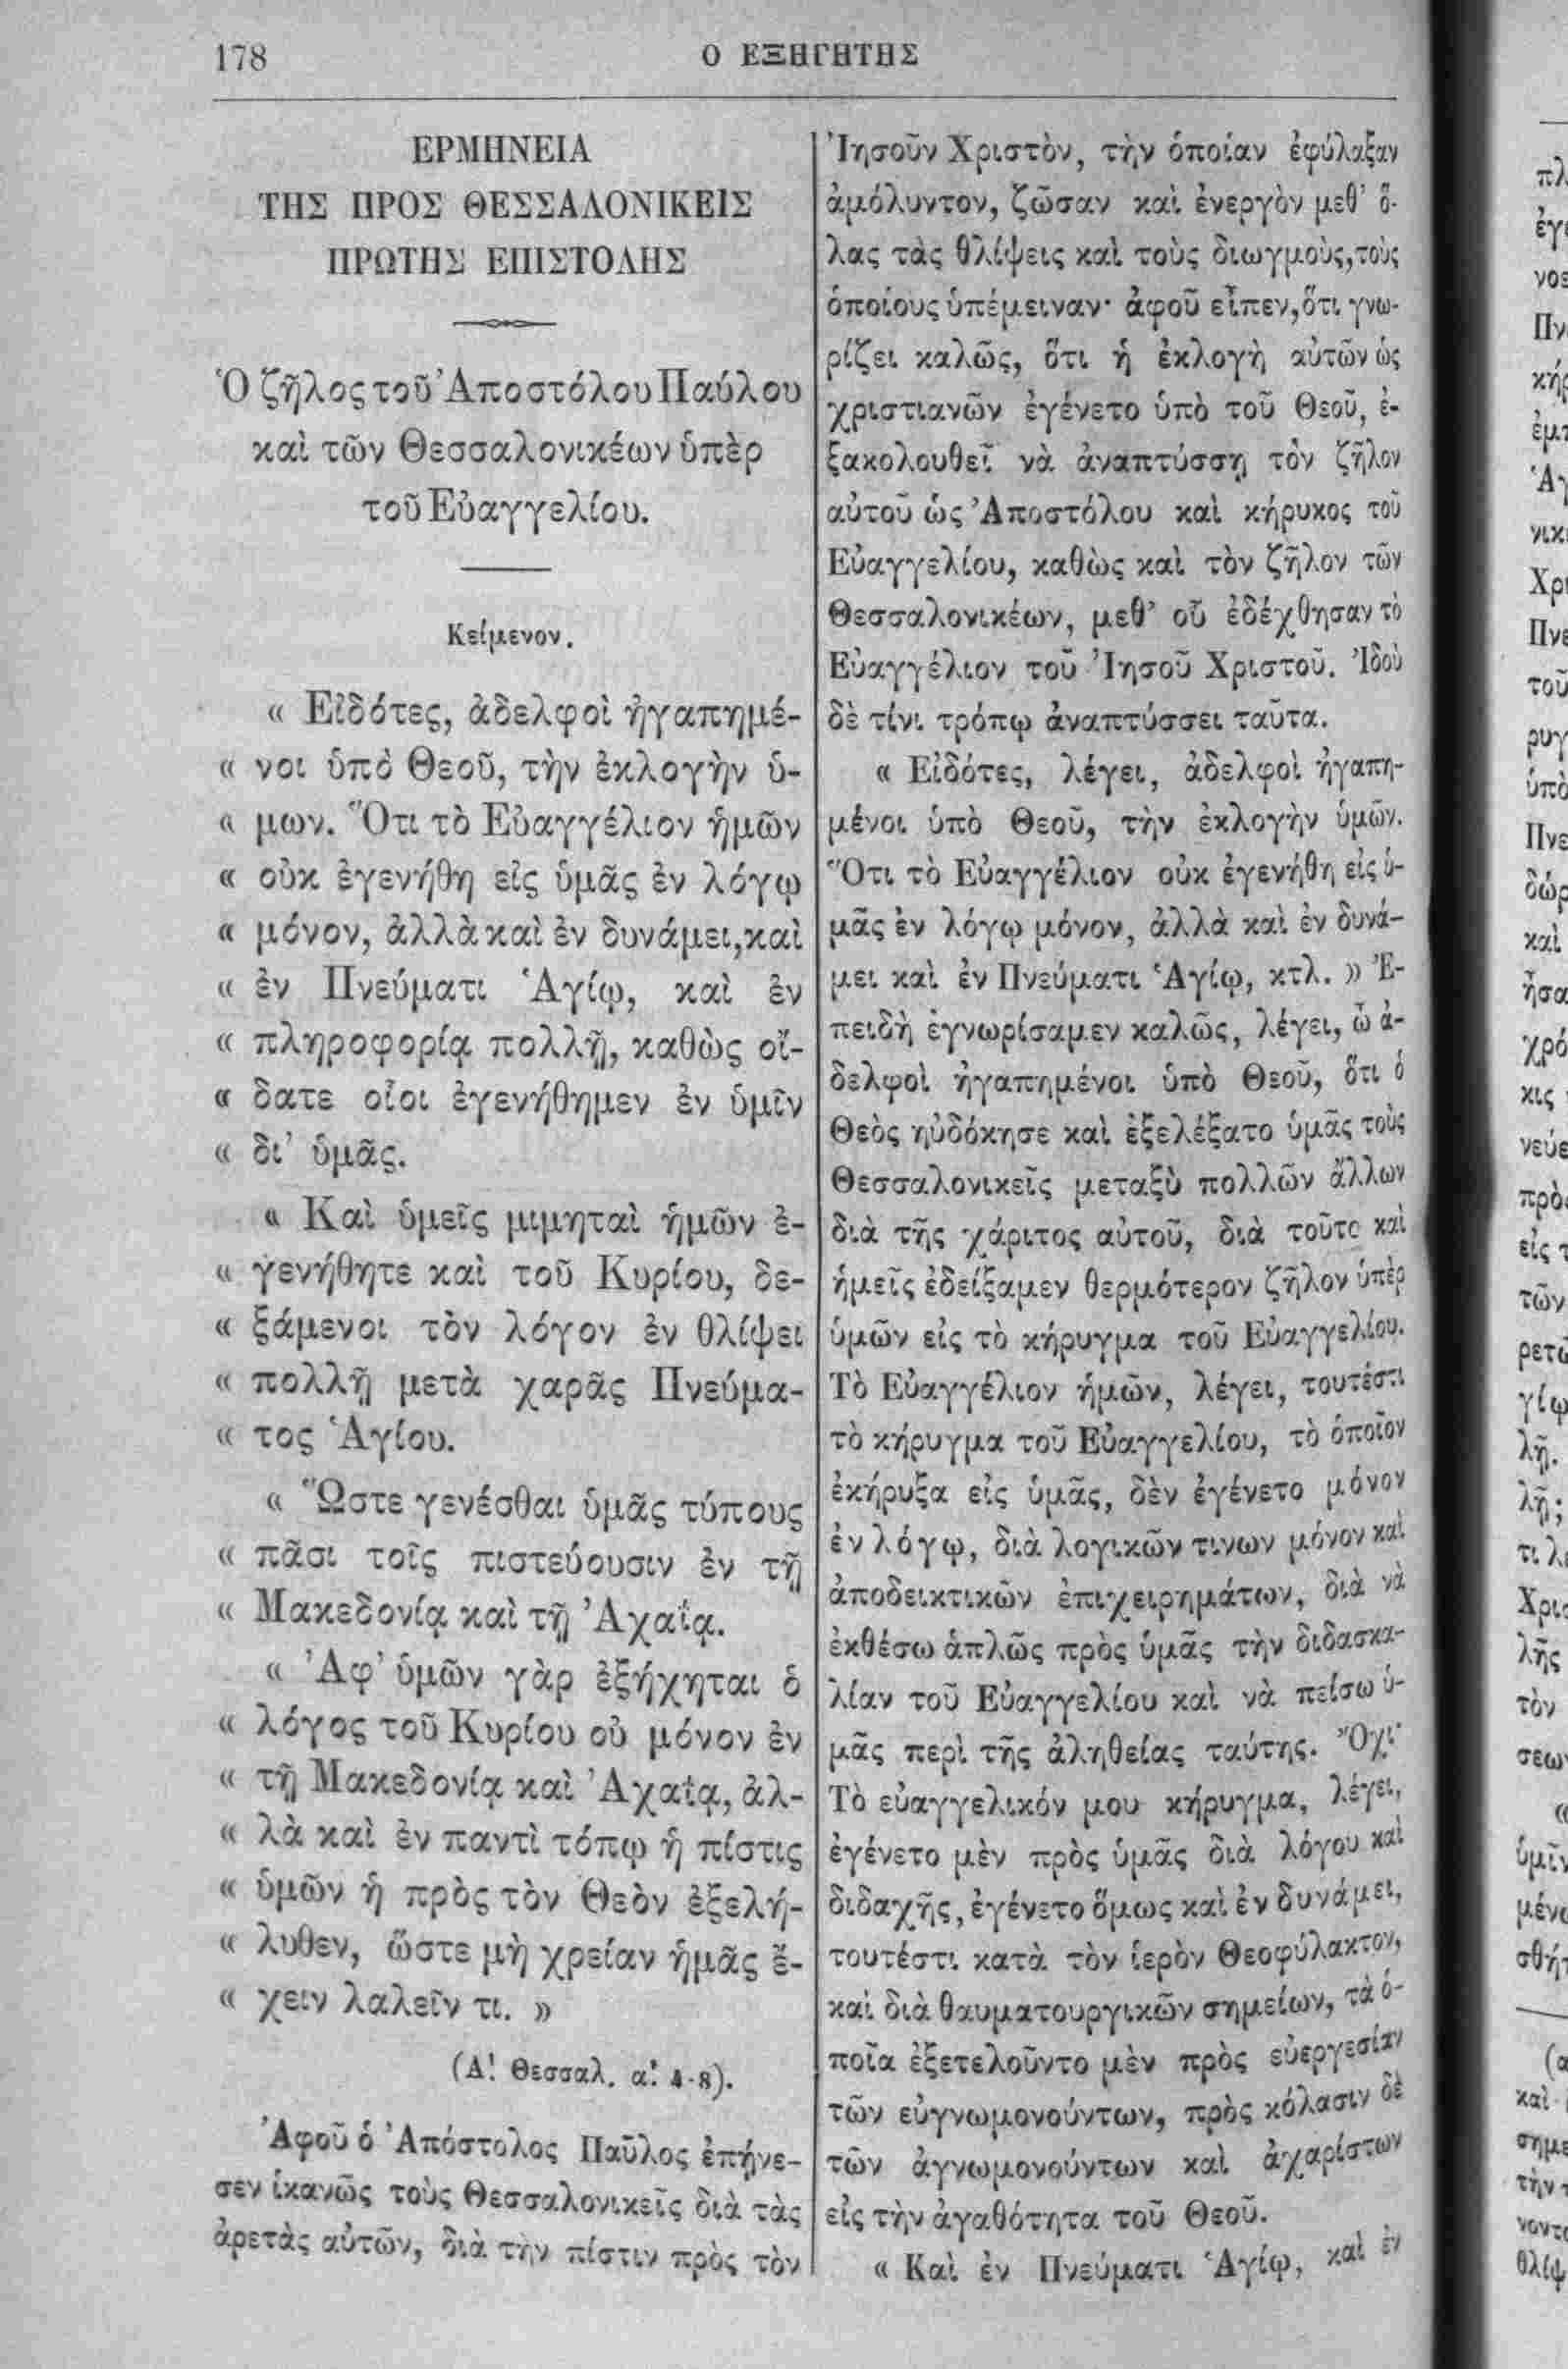 178
Ο ΕΞΗΓΗΤΗΣ
ΕΡΜΗΝΕΙΑ
ΤΗΣ ΠΡΟΣ ΘΕΣΣΑΛΟΝΙΚΕΙΣ
ΠΡΩΤΗΣ ΕΠΙΣΤΟΛΗΣ
Ὁ ζῆλος τοῦ Ἀποστόλου Παύλου
καὶ τῶν Θεσσαλονικέων ὑπὲρ
τοῦ Εὐαγγελίου.
Κείμενον.
« Εἰδότες, ἀδελφοὶ ἠγαπημέ-
« νοι ὑπὸ Θεοῦ, τὴν ἐκλογὴν ὑ-
« μων. Ὅτι τὸ Εὐαγγέλιον ἡμῶν
« οὐκ ἐγενήθη εἰς ὑμᾶς ἐν λόγῳ
« μόνον, ἀλλὰ καὶ ἐν δυνάμει, καὶ
« ἐν Πνεύματι Ἁγίῳ, καὶ ἐν
« πληροφορίᾳ πολλῇ, καθὼς οἴ-
« δατε οἷοι ἐγενήθημεν ἐν ὑμῖν
« δι' ὑμᾶς.
« Καὶ ὑμεῖς μιμηταὶ ἡμῶν ἐ-
« γενήθητε καὶ τοῦ Κυρίου, δε-
« ξάμενοι τὸν λόγον ἐν θλίψει
« πολλῇ μετὰ χαρᾶς Πνεύμα-
« τος Ἁγίου.
« Ὥστε γενέσθαι ὑμᾶς τύπους
« πᾶσι τοῖς πιστεύουσιν ἐν τῇ
« Μακεδονίᾳ καὶ τῇ Ἀχαΐᾳ.
« Ἀφ' ὑμῶν γὰρ ἐξήχηται ὁ
« λόγος τοῦ Κυρίου οὐ μόνον ἐν
« τῇ Μακεδονίᾳ καὶ Ἀχαΐᾳ, ἀλ-
« λὰ καὶ ἐν παντὶ τόπῳ ἡ πίστις
« ὑμῶν ἡ πρὸς τὸν Θεὸν ἐξελή-
« λυθεν, ὥστε μὴ χρείαν ἡμᾶς ἔ-
« χειν λαλεῖν τι. »
(Α! Θεσσαλ. α! 4-8).
Ἀφοῦ ὁ Ἀπόστολος Παῦλος ἐπῄνε-
σεν ἱκανῶς τοὺς Θεσσαλονικεῖς διὰ τὰς
ἀρετὰς αὐτῶν, διὰ τὴν πίστιν πρὸς τὸν
Ἰησοῦν Χριστὸν, τὴν ὁποίαν ἐφύλαξαν
ἀμόλυντον, ζῶσαν καὶ ἐνεργὸν μεθ' ὅ-
λας τὰς θλίψεις καὶ τοὺς διωγμοὺς, τοὺς
ὁποίους ὑπέμειναν· ἀφοῦ εἶπεν, ὅτι γνω-
ρίζει καλῶς, ὅτι ἡ ἐκλογὴ αὐτῶν ὡς
χριστιανῶν ἐγένετο ὑπὸ τοῦ Θεοῦ, ἐ-
ξακολουθεῖ νὰ ἀναπτύσσῃ τὸν ζῆλον
αὐτοῦ ὡς Ἀποστόλου καὶ κήρυκος τοῦ
Εὐαγγελίου, καθὼς καὶ τὸν ζῆλον τῶν
Θεσσαλονικέων, μεθ' οὗ ἐδέχθησαν τὸ
Εὐαγγέλιον τοῦ Ἰησοῦ Χριστοῦ. Ἰδοὺ
δὲ τίνι τρόπῳ ἀναπτύσσει ταῦτα.
« Εἰδότες, λέγει, ἀδελφοὶ ἠγαπη-
μένοι ὑπὸ Θεοῦ, τὴν ἐκλογὴν ὑμῶν.
Ὅτι τὸ Εὐαγγέλιον οὐκ ἐγενήθη εἰς ὑ-
μᾶς ἐν λόγῳ μόνον, ἀλλὰ καὶ ἐν δυνά-
μει καὶ ἐν Πνεύματι Ἁγίῳ, κτλ. » Ἐ-
πειδὴ ἐγνωρίσαμεν καλῶς, λέγει, ὦ ἀ-
δελφοὶ ἠγαπημένοι ὑπὸ Θεοῦ, ὅτι ὁ
Θεὸς ηὐδόκησε καὶ ἐξελέξατο ὑμᾶς τοὺς
Θεσσαλονικεῖς μεταξὺ πολλῶν ἄλλων
διὰ τῆς χάριτος αὐτοῦ, διὰ τοῦτο καὶ
ἡμεῖς ἐδείξαμεν θερμότερον ζῆλον ὑπὲρ
ὑμῶν εἰς τὸ κήρυγμα τοῦ Εὐαγγελίου.
Τὸ Εὐαγγέλιον ἡμῶν, λέγει, τουτέστι
τὸ κήρυγμα τοῦ Εὐαγγελίου, τὸ ὁποῖον
ἐκήρυξα εἰς ὑμᾶς, δὲν ἐγένετο μόνον
ἐν λόγῳ, διὰ λογικῶν τινων μόνον καὶ
ἀποδεικτικῶν ἐπιχειρημάτων, διὰ νὰ
ἐκθέσω ἁπλῶς πρὸς ὑμᾶς τὴν διδασκα-
λίαν τοῦ Εὐαγγελίου καὶ νὰ πείσω ὑ-
μᾶς περὶ τῆς ἀληθείας ταύτης. Ὄχι·
Τὸ εὐαγγελικόν μου κήρυγμα, λέγει,
ἐγένετο μὲν πρὸς ὑμᾶς διὰ λόγου καὶ
διδαχῆς, ἐγένετο ὅμως καὶ ἐν δυνάμει,
τουτέστι κατὰ τὸν ἱερὸν Θεοφύλακτον,
καὶ διὰ θαυματουργικῶν σημείων, τὰ ὁ-
ποῖα ἐξετελοῦντο μὲν πρὸς εὐεργεσίαν
τῶν εὐγνωμονούντων, πρὸς κόλασιν δὲ
τῶν ἀγνωμονούντων καὶ ἀχαρίστων
εἰς τὴν ἀγαθότητα τοῦ Θεοῦ.
« Καὶ ἐν Πνεύματι Ἁγίῳ, καὶ ἐν